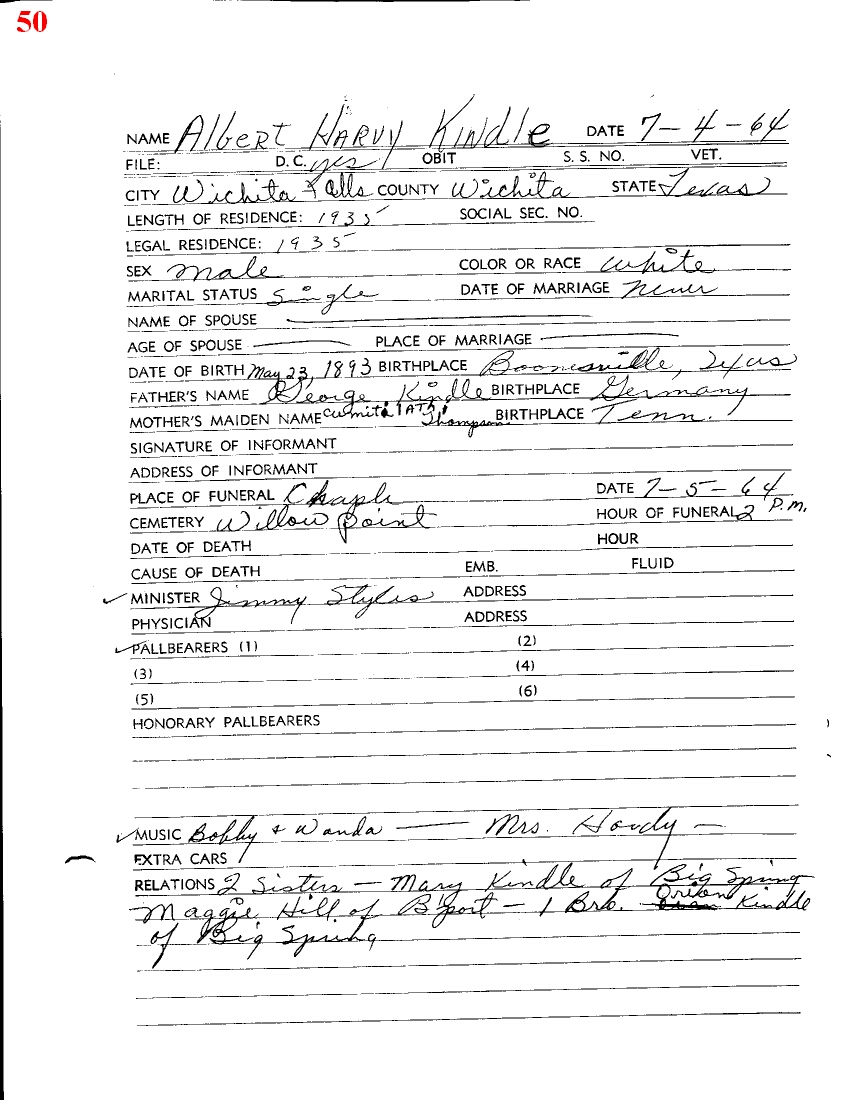 50
NAME Albert Harvy Kindle DATE 7-4-64
FILE: D.C. yes OBIT S. S. NO. VET.
CITY Wichita Falls COUNTY Wichita STATE Texas
LENGTH OF RESIDENCE: 1935 SOCIAL SEC. NO.
LEGAL RESIDENCE: 1935
SEX male COLOR OR RACE white
MARITAL STATUS Single DATE OF MARRIAGE never
NAME OF SPOUSE
AGE OF SPOUSE PLACE OF MARRIAGE
DATE OF BIRTH May 23, 1893 BIRTHPLACE Boonesville, Texas
FATHER'S NAME George Kindle BIRTHPLACE Germany
MOTHER'S MAIDEN NAME Thompson BIRTHPLACE Tenn.
SIGNATURE OF INFORMANT
ADDRESS OF INFORMANT
PLACE OF FUNERAL Chaple DATE 7-5-64
CEMETERY Willow Point HOUR OF FUNERAL 2 P.M.
DATE OF DEATH HOUR
CAUSE OF DEATH EMB. FLUID
MINISTER Jimmy Styles ADDRESS
PHYSICIAN ADDRESS
PALLBEARERS (1) (2)
(3) (4)
(5) (6)
HONORARY PALLBEARERS
MUSIC Bobby & Wanda — Mrs. Hovdy —
EXTRA CARS
RELATIONS 2 Sisters — Mary Kindle of Big Spring
Maggie Hill of B'port — 1 Bro. Orion Kindle
of Big Spring